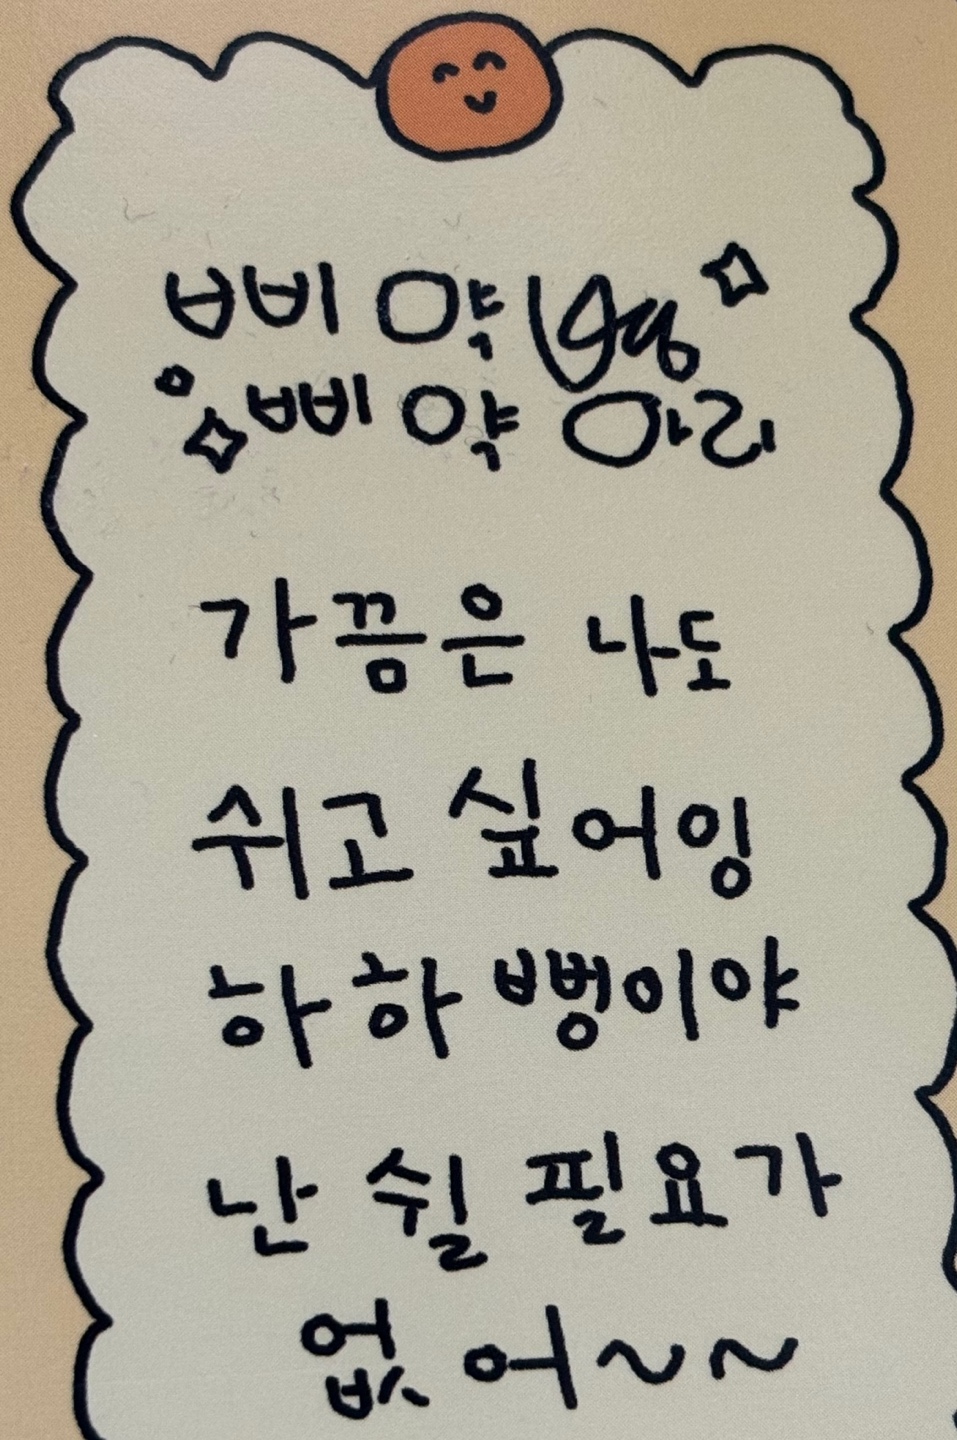 삐약
삐약이리
가끔은 나도
쉬고 싶어잉
하하 뻥이야
난 쉴 필요가
없어~~